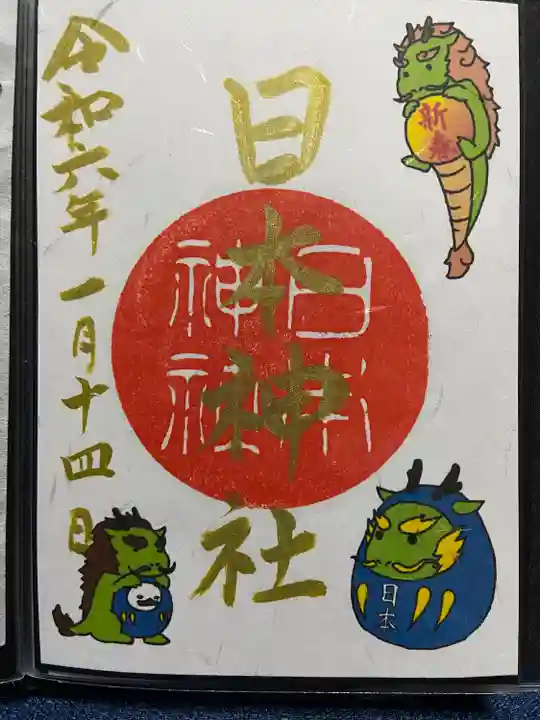 新春
日本神社
日本
神社
令和六年一月十四日
日本